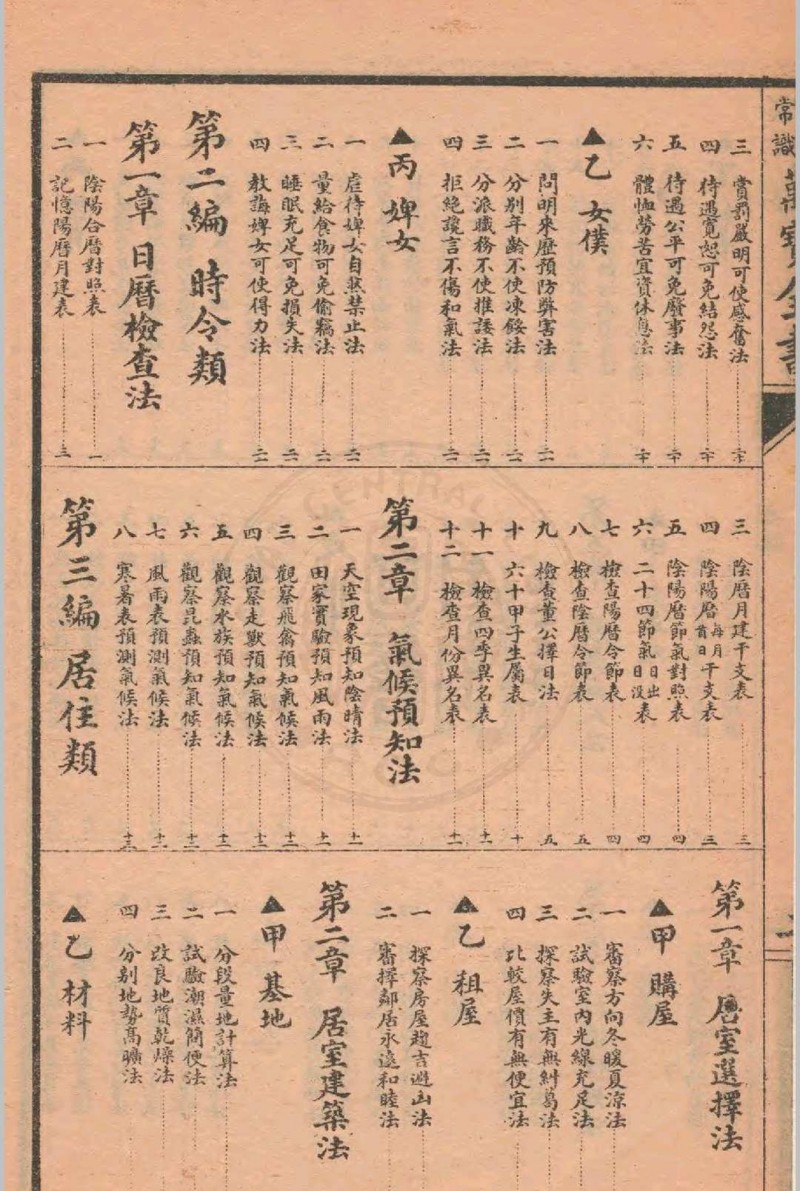 常識萬寶全書
三 賞罰嚴明可使感奮法 二十
四 待遇寬恕可免結怨法 二十
五 待遇公平可免廢事法 二十
六 體恤勞苦宜資休息法 二十
▲乙 女僕
一 問明來歷預防弊害法 二一
二 分別年齡不使凍餒法 二一
三 分派職務不使推諉法 二一
四 拒絕讒言不傷和氣法 二一
▲丙 婢女
一 虐待婢女自熬禁止法 二一
二 量給食物可免偷竊法 二一
三 睡眠充足可免損失法 二一
四 教誨婢女可使得力法 二一
第二編 時令類
第一章 日曆檢查法
一 陰陽合曆對照表 一
二 記憶陽曆月建表 三
三 陰曆月建干支表 三
四 陰陽曆每月首日干支表 三
五 陰陽曆節氣對照表 四
六 二十四節氣日出日沒表 四
七 檢查陽曆令節表 四
八 檢查陰曆令節表 五
九 檢查董公擇日法 五
十 六十甲子生屬表 十
十一 檢查四季異名表 十一
十二 檢查月份異名表 十一
第二章 氣候預知法
一 天空現象預知陰晴法 十一
二 田家實驗預知風雨法 十一
三 觀察飛禽預知氣候法 十二
四 觀察走獸預知氣候法 十二
五 觀察水族預知氣候法 十二
六 觀察昆蟲預知氣候法 十二
七 風雨表預測氣候法 十二
八 寒暑表預測氣候法 十三
第三編 居住類
第一章 居室選擇法
▲甲 購屋
一 審察方向冬暖夏涼法
二 試驗室內光線充足法
三 探察失主有無糾葛法
四 比較屋價有無便宜法
▲乙 租屋
一 探察房屋趨吉避凶法
二 審擇鄰居永遠和睦法
第二章 居室建築法
▲甲 基地
一 分段量地計算法
二 試驗潮濕簡便法
三 改良地質乾燥法
四 分別地勢高曠法
▲乙 材料